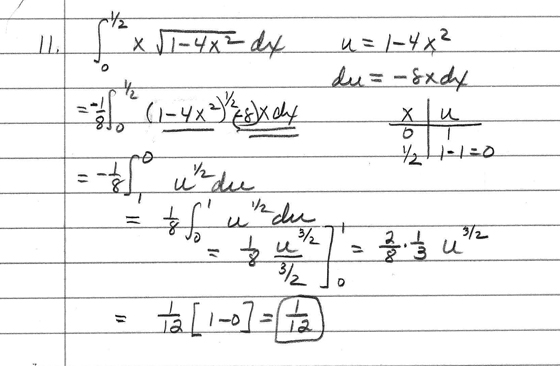 11. ∫₀^{1/2} x √(1-4x²) dx    u = 1-4x²
du = -8x dx
= -1/8 ∫₀^{1/2} (1-4x²)^{1/2} (-8) x dx    x | u
0 | 1
1/2 | 1-1=0
= -1/8 ∫₁⁰ u^{1/2} du
= 1/8 ∫₀¹ u^{1/2} du
= 1/8 u^{3/2}/(3/2) ]₀¹ = 2/8 · 1/3 u^{3/2}
= 1/12 [1-0] = 1/12